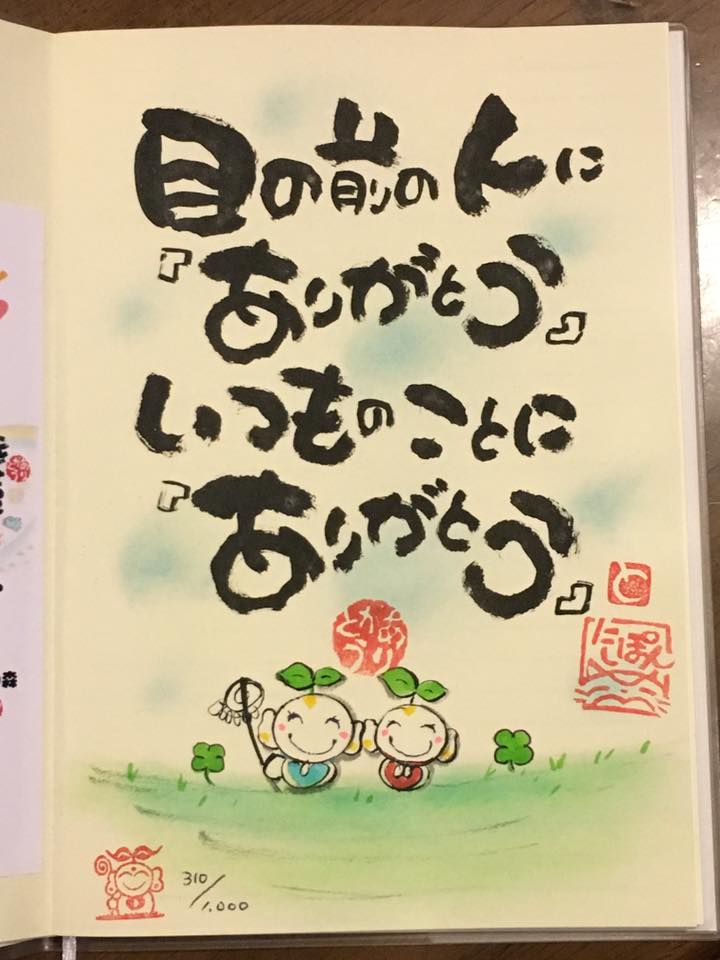 目の前の人に
『ありがとう』
いつものことに
『ありがとう』
にしぽん
310/1.000
森